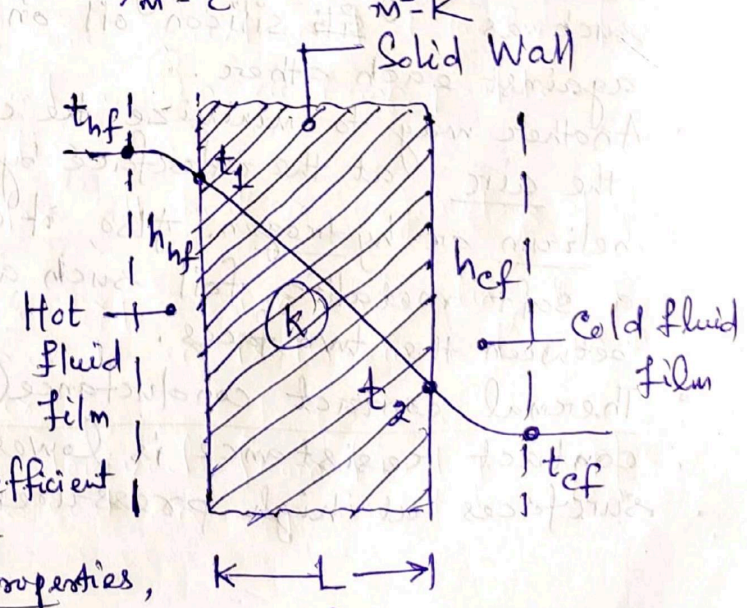 m²-K
Solid Wall
t_hf
t_1
h_hf
h_cf
k
Hot
fluid
film
Cold fluid
film
t_2
t_cf
efficient
L
roperties,